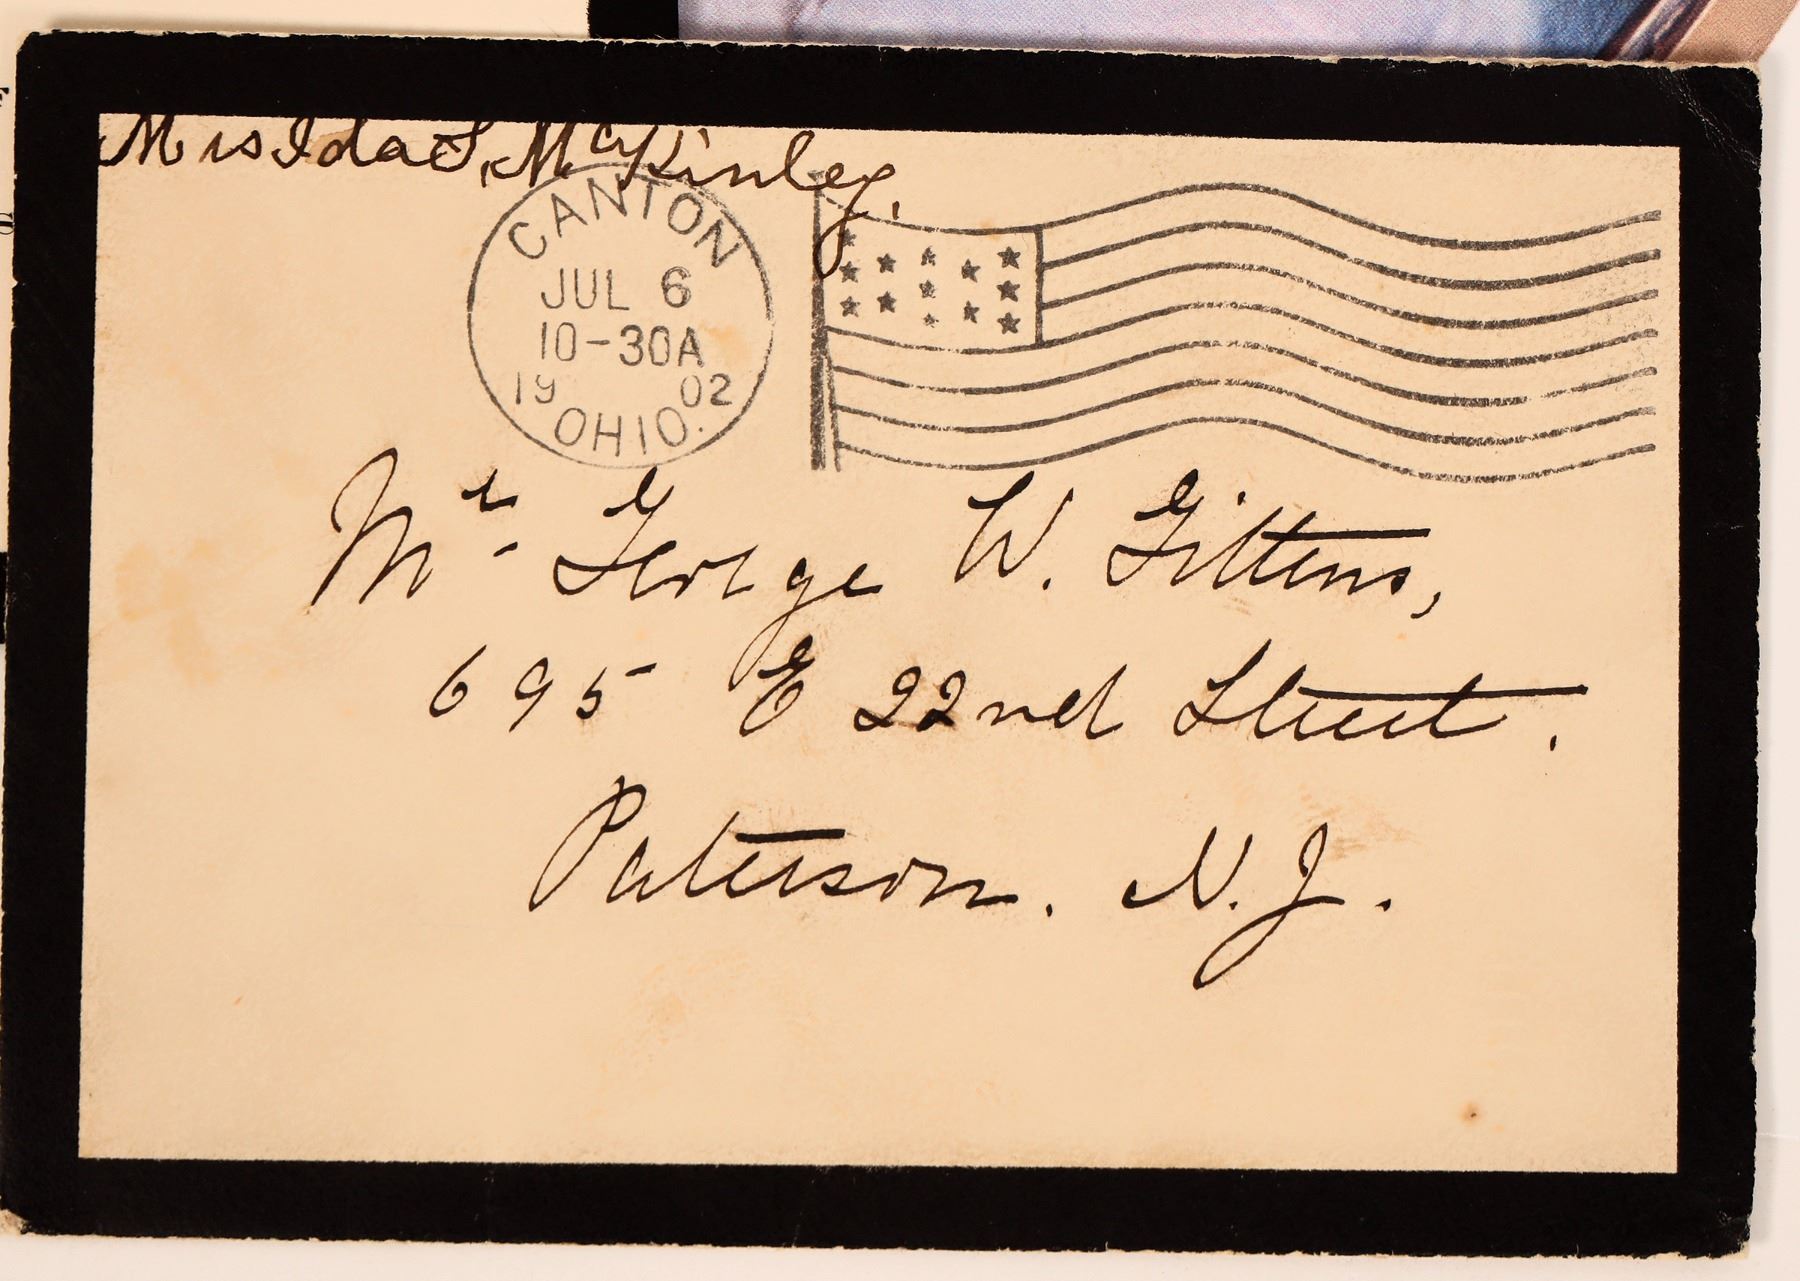 Mrs Ida S. McKinley.
CANTON
JUL 6
10-30A
19 02
OHIO.
Mr. George W. Gittens,
695 E 22nd Street.
Paterson. N.J.